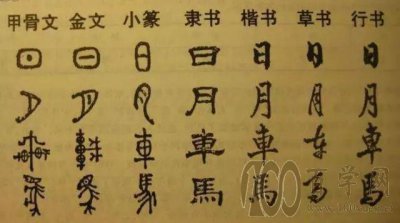 甲骨文 金文 小篆 隶书 楷书 草书 行书
日 日 日 日 日 日 日
月 月 月 月 月 月 月
車 車 車 車 車 车 車
馬 馬 馬 馬 馬 马 馬
100百学网